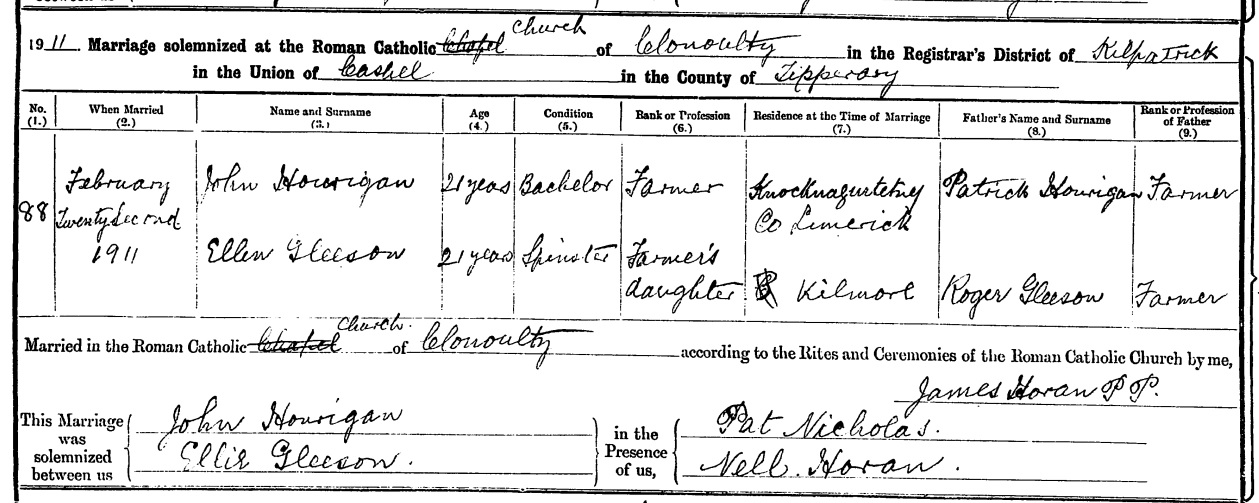 Church
1911. Marriage solemnized at the Roman Catholic Chapel of Clonoulty in the Registrar's District of Kilpatrick
in the Union of Cashel in the County of Tipperary
No. When Married Name and Surname Age Condition Rank or Profession Residence at the Time of Marriage Father's Name and Surname Rank or Profession of Father
(1.) (2.) (3.) (4.) (5.) (6.) (7.) (8.) (9.)
February John Hourigan 21 years Bachelor Farmer Knocknagurteeny Patrick Hourigan Farmer
88 Twenty Second Co Limerick
1911 Ellen Gleeson 21 years Spinster Farmer's
daughter Kilmore Roger Gleeson Farmer
Church.
Married in the Roman Catholic Chapel of Clonoulty according to the Rites and Ceremonies of the Roman Catholic Church by me,
James Horan P P.
This Marriage was solemnized between us
John Hourigan
Ellie Gleeson.
in the Presence of us,
Pat Nicholas.
Nell Horan.